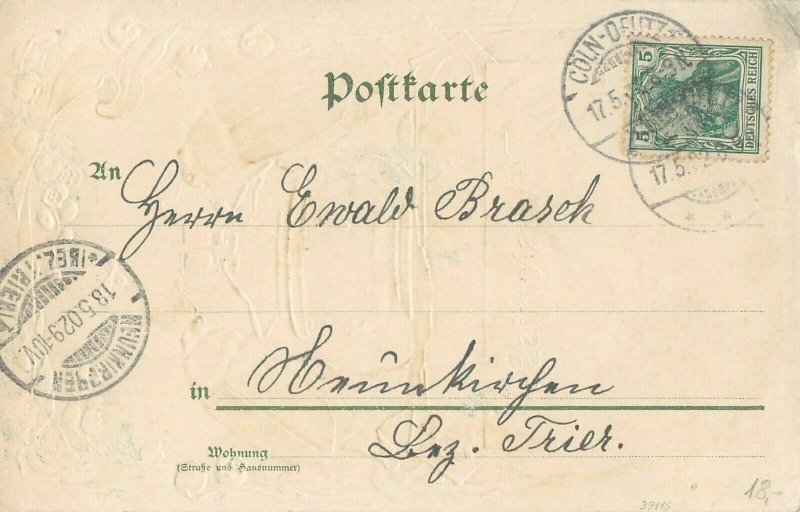 Postkarte
CÖLN-DEUTZ
17.5.
5
5
DEUTSCHES REICH
17.5.02
An Herrn Ewald Brasch
NEUNKIRCHEN
(BEZ. TRIER)
18.5.02.9-10V.
in Neunkirchen
Bez. Trier.
Wohnung
(Straße und Hausnummer)
39115
18,-